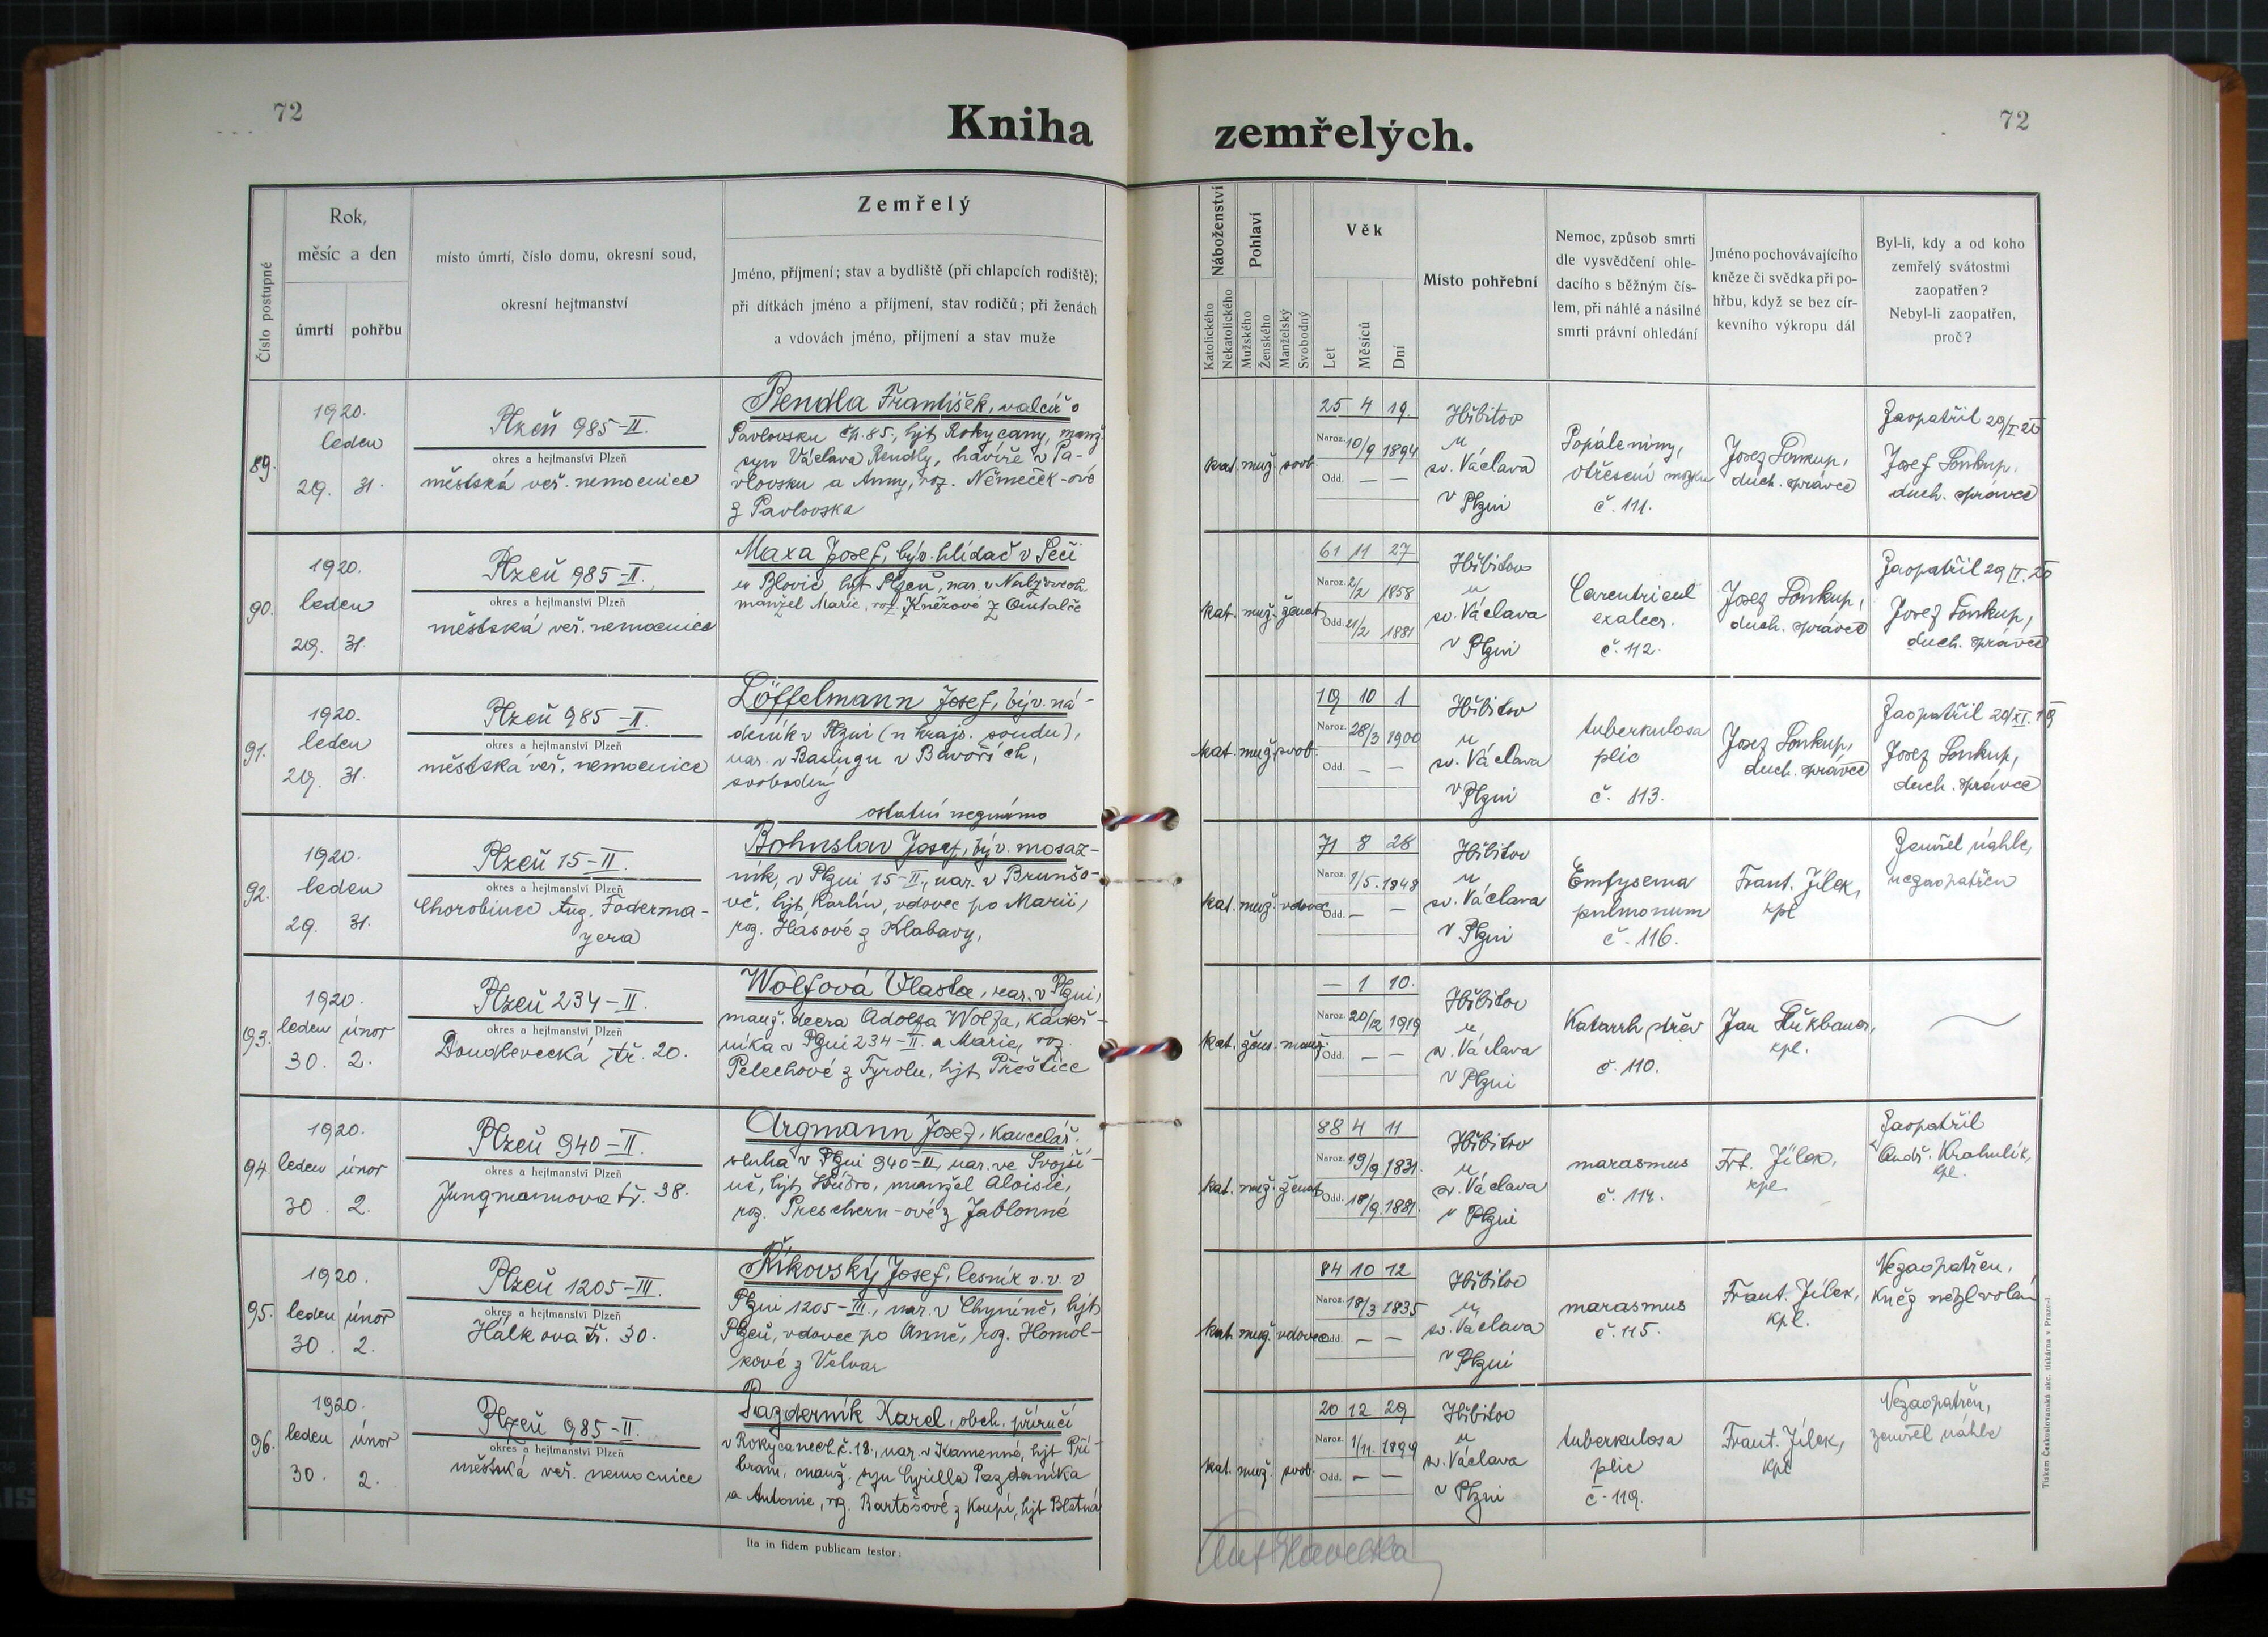 72
Kniha
Číslo postupné
Rok,
měsíc a den
úmrtí
pohřbu
místo úmrtí, číslo domu, okresní soud,
okresní hejtmanství
Zemřelý
Jméno, příjmení; stav a bydliště (při chlapcích rodiště);
při dítkách jméno a příjmení, stav rodičů; při ženách
a vdovách jméno, příjmení a stav muže
89.
1920.
leden
29. 31.
Plzeň 985-II.
okres a hejtmanství Plzeň
městská veř. nemocnice
František, valcíř v
Pavlovsku čp. 85., hjt. Rokycany, manž.
syn Václava Rendly, havíře v Pa-
vlovsku a Anny, roz. Němeček-ové
z Pavlovska
90.
1920.
leden
29. 31.
Plzeň 985-II.
okres a hejtmanství Plzeň
městská veř. nemocnice
Maxa Josef, býv. hlídač v
u Blovic, hjt. Plzeň, nar. v
manžel Marie, roz. Kněžové z
91.
1920.
leden
29. 31.
Plzeň 985-II.
okres a hejtmanství Plzeň
městská veř. nemocnice
Löffelmann Josef, býv. ná-
deník v Plzni (u krajs. soudu),
nar. v v Bavořích,
svobodný
ostatní neznámo
92.
1920.
leden
29. 31.
Plzeň 15-II.
okres a hejtmanství Plzeň
Chorobinec Aug. Foderma-
yera
Bohuslav Josef, býv. mosaz-
ník, v Plzni 15-II., nar. v Brunšo-
vě, hjt. Karlín, vdovec po Marii,
roz. Hásové z Klabavy,
93.
1920.
leden únor
30. 2.
Plzeň 234-II.
okres a hejtmanství Plzeň
Doudlevecká tř. 20.
Wolfová Vlasta, nar. v Plzni,
manž. dcera Adolfa Wolfa, kadeř-
níka v Plzni 234-II. a Marie, roz.
Pelechové z Tyrolu, hjt. Přeštice
94.
1920.
leden únor
30. 2.
Plzeň 940-II.
okres a hejtmanství Plzeň
Jungmannova tř. 38.
Argmann Josef, kancelář.
sluha v Plzni 940-II., nar. ve Svojší-
ně, hjt. Stříbro, manžel Aloisie,
roz. Preschern-ové z Jablonné
95.
1920.
leden únor
30. 2.
Plzeň 1205-III.
okres a hejtmanství Plzeň
Hálkova tř. 30.
Říkovský Josef, lesník v. v. v
Plzni 1205-III., nar. v Chyníně, hjt.
Plzeň, vdovec po Anně, roz. Homol-
kové z Velvar
96.
1920.
leden únor
30. 2.
Plzeň 985-II.
okres a hejtmanství Plzeň
městská veř. nemocnice
Pazderník Karel, obch. příručí
v Rokycanech č. 18., nar. v Kamenné, hjt. Pří-
bram, manž. syn Cyrilla Pazderníka
a Antonie, roz. Bartošové z Koupí, hjt. Blatná
Ita in fidem publicam testor:
72
zemřelých.
Náboženství
Katolického
Nekatolického
Pohlaví
Mužského
Ženského
Manželský
Svobodný
Věk
Let
Měsíců
Dní
Místo pohřební
Nemoc, způsob smrti
dle vysvědčení ohle-
dacího s běžným čís-
lem, při náhlé a násilné
smrti právní ohledání
Jméno pochovávajícího
kněze či svědka při po-
hřbu, když se bez cír-
kevního výkropu dál
Byl-li, kdy a od koho
zemřelý svátostmi
zaopatřen?
Nebyl-li zaopatřen,
proč?
kat. muž. svob.
25 4 19.
Naroz. 10/9 1894
Odd. — —
Hřbitov
u
sv. Václava
v Plzni
Popáleniny,
otřesení mozku
č. 111.
Josef Soukup,
duch. správce
Zaopatřil 29/I 20
Josef Soukup,
duch. správce
kat. muž. ženat
61 11 27
Naroz. 2/2 1858
Odd. 21/2 1881
Hřbitov
u
sv. Václava
v Plzni
č. 112.
Josef Soukup,
duch. správce
Zaopatřil 29/I. 20
Josef Soukup,
duch. správce
kat. muž. svob.
19 10 1
Naroz. 28/3 1900
Odd. — —
Hřbitov
u
sv. Václava
v Plzni
tuberkulosa
plic
č. 113.
Josef Soukup,
duch. správce
Zaopatřil 20/XI. 19
Josef Soukup,
duch. správce
kat. muž. vdovec
71 8 28
Naroz. 1/5. 1848
Odd. — —
Hřbitov
u
sv. Václava
v Plzni
Emfysema
pulmonum
č. 116.
Frant. Jílek,
kpl.
Zemřel náhle,
nezaopatřen
kat. žens. manž.
— 1 10.
Naroz. 20/12 1919
Odd. — —
Hřbitov
u
sv. Václava
v Plzni
Katarrh střev
č. 110.
Jan
kpl.
kat. muž. ženat
88 4 11
Naroz. 19/9 1831.
Odd. 18/9. 1881.
Hřbitov
u
sv. Václava
v Plzni
marasmus
č. 114.
Frt. Jílek,
kpl.
Zaopatřil
Ondř. Krahulík,
kpl.
kat. muž. vdovec
84 10 12
Naroz. 18/3 1835
Odd. — —
Hřbitov
u
sv. Václava
v Plzni
marasmus
č. 115.
Frant. Jílek,
kpl.
Nezaopatřen,
kněz nebyl volán
kat. muž. svob.
20 12 29
Naroz. 1/11. 1899
Odd. — —
Hřbitov
u
sv. Václava
v Plzni
tuberkulosa
plic
č. 119.
Frant. Jílek,
kpl.
Nezaopatřen,
zemřel náhle
Tiskem Českoslovanská akc. tiskárna v Praze-I